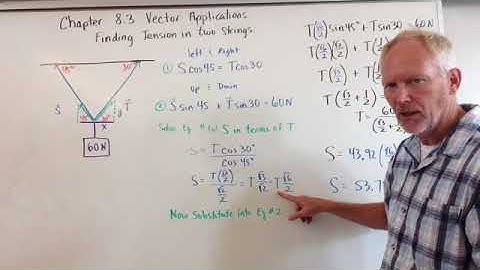 Chapter 8.3 Vector Applications
Finding Tension in two strings
45°
30°
S
T
60N
left = Right
① S cos45 = T cos30
up = Down
② S sin45 + T sin30 = 60N
Solve Eq #1 for S in terms of T
S = T cos30° / cos45°
S = T(√3/2) / (√2/2) = T √3/√2 = T √6/2
Now Substitute into Eq #2
T(√6/2) sin45 + T sin30 = 60N
T(√6/2)(√2/2) + T(1/2)
T(√3/2) + T(1/2)
T(√3/2 + 1/2)
T = 60 / (√3/2 +
S = 43.92 (√6
S = 53.7